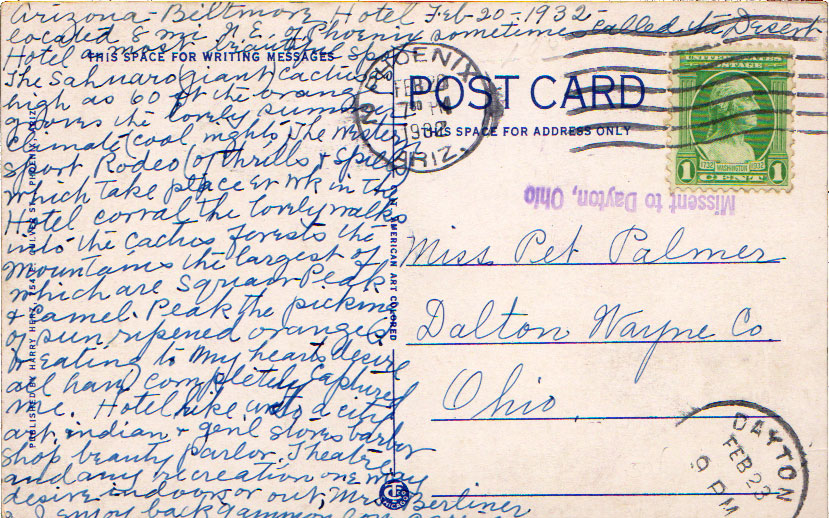 Arizona-Biltmore Hotel Feb-20-1932-
located 8 mi N.E. of Phoenix sometimes called the Desert
Hotel a most beautiful spot
The Sahuaro (giant) Cactus
high as 60 ft the orange
groves the lovely summer
climate (cool nights) The Western
Sport, Rodeo (of thrills & spills)
which take place ev wk in the
Hotel corral the lovely walks
into the Cactus forests the
Mountains the largest of
which are Squaw Peak
& Camel. Peak the picking
of sun ripened oranges
(& eating to my hearts desire
all have completely captured
me. Hotel like unto a city
art, indian & gen'l stores barber
shop beauty parlor, Theatre
and any recreation one may
desire indoors or out, Mrs. Berliner
& I enjoy backgammon
THIS SPACE FOR WRITING MESSAGES
PUBLISHED BY HARRY HERZ, PHOENIX, ARIZ.
AMERICAN ART COLORED
POST CARD
THIS SPACE FOR ADDRESS ONLY
PHOENIX
FEB
7 30 PM
ARIZ.
UNITED STATES
POSTAGE
1732 WASHINGTON 1932
1 CENT 1
Missent to Dayton, Ohio
Miss Pet Palmer
Dalton Wayne Co.
Ohio,
DAYTON
FEB 23
9 PM